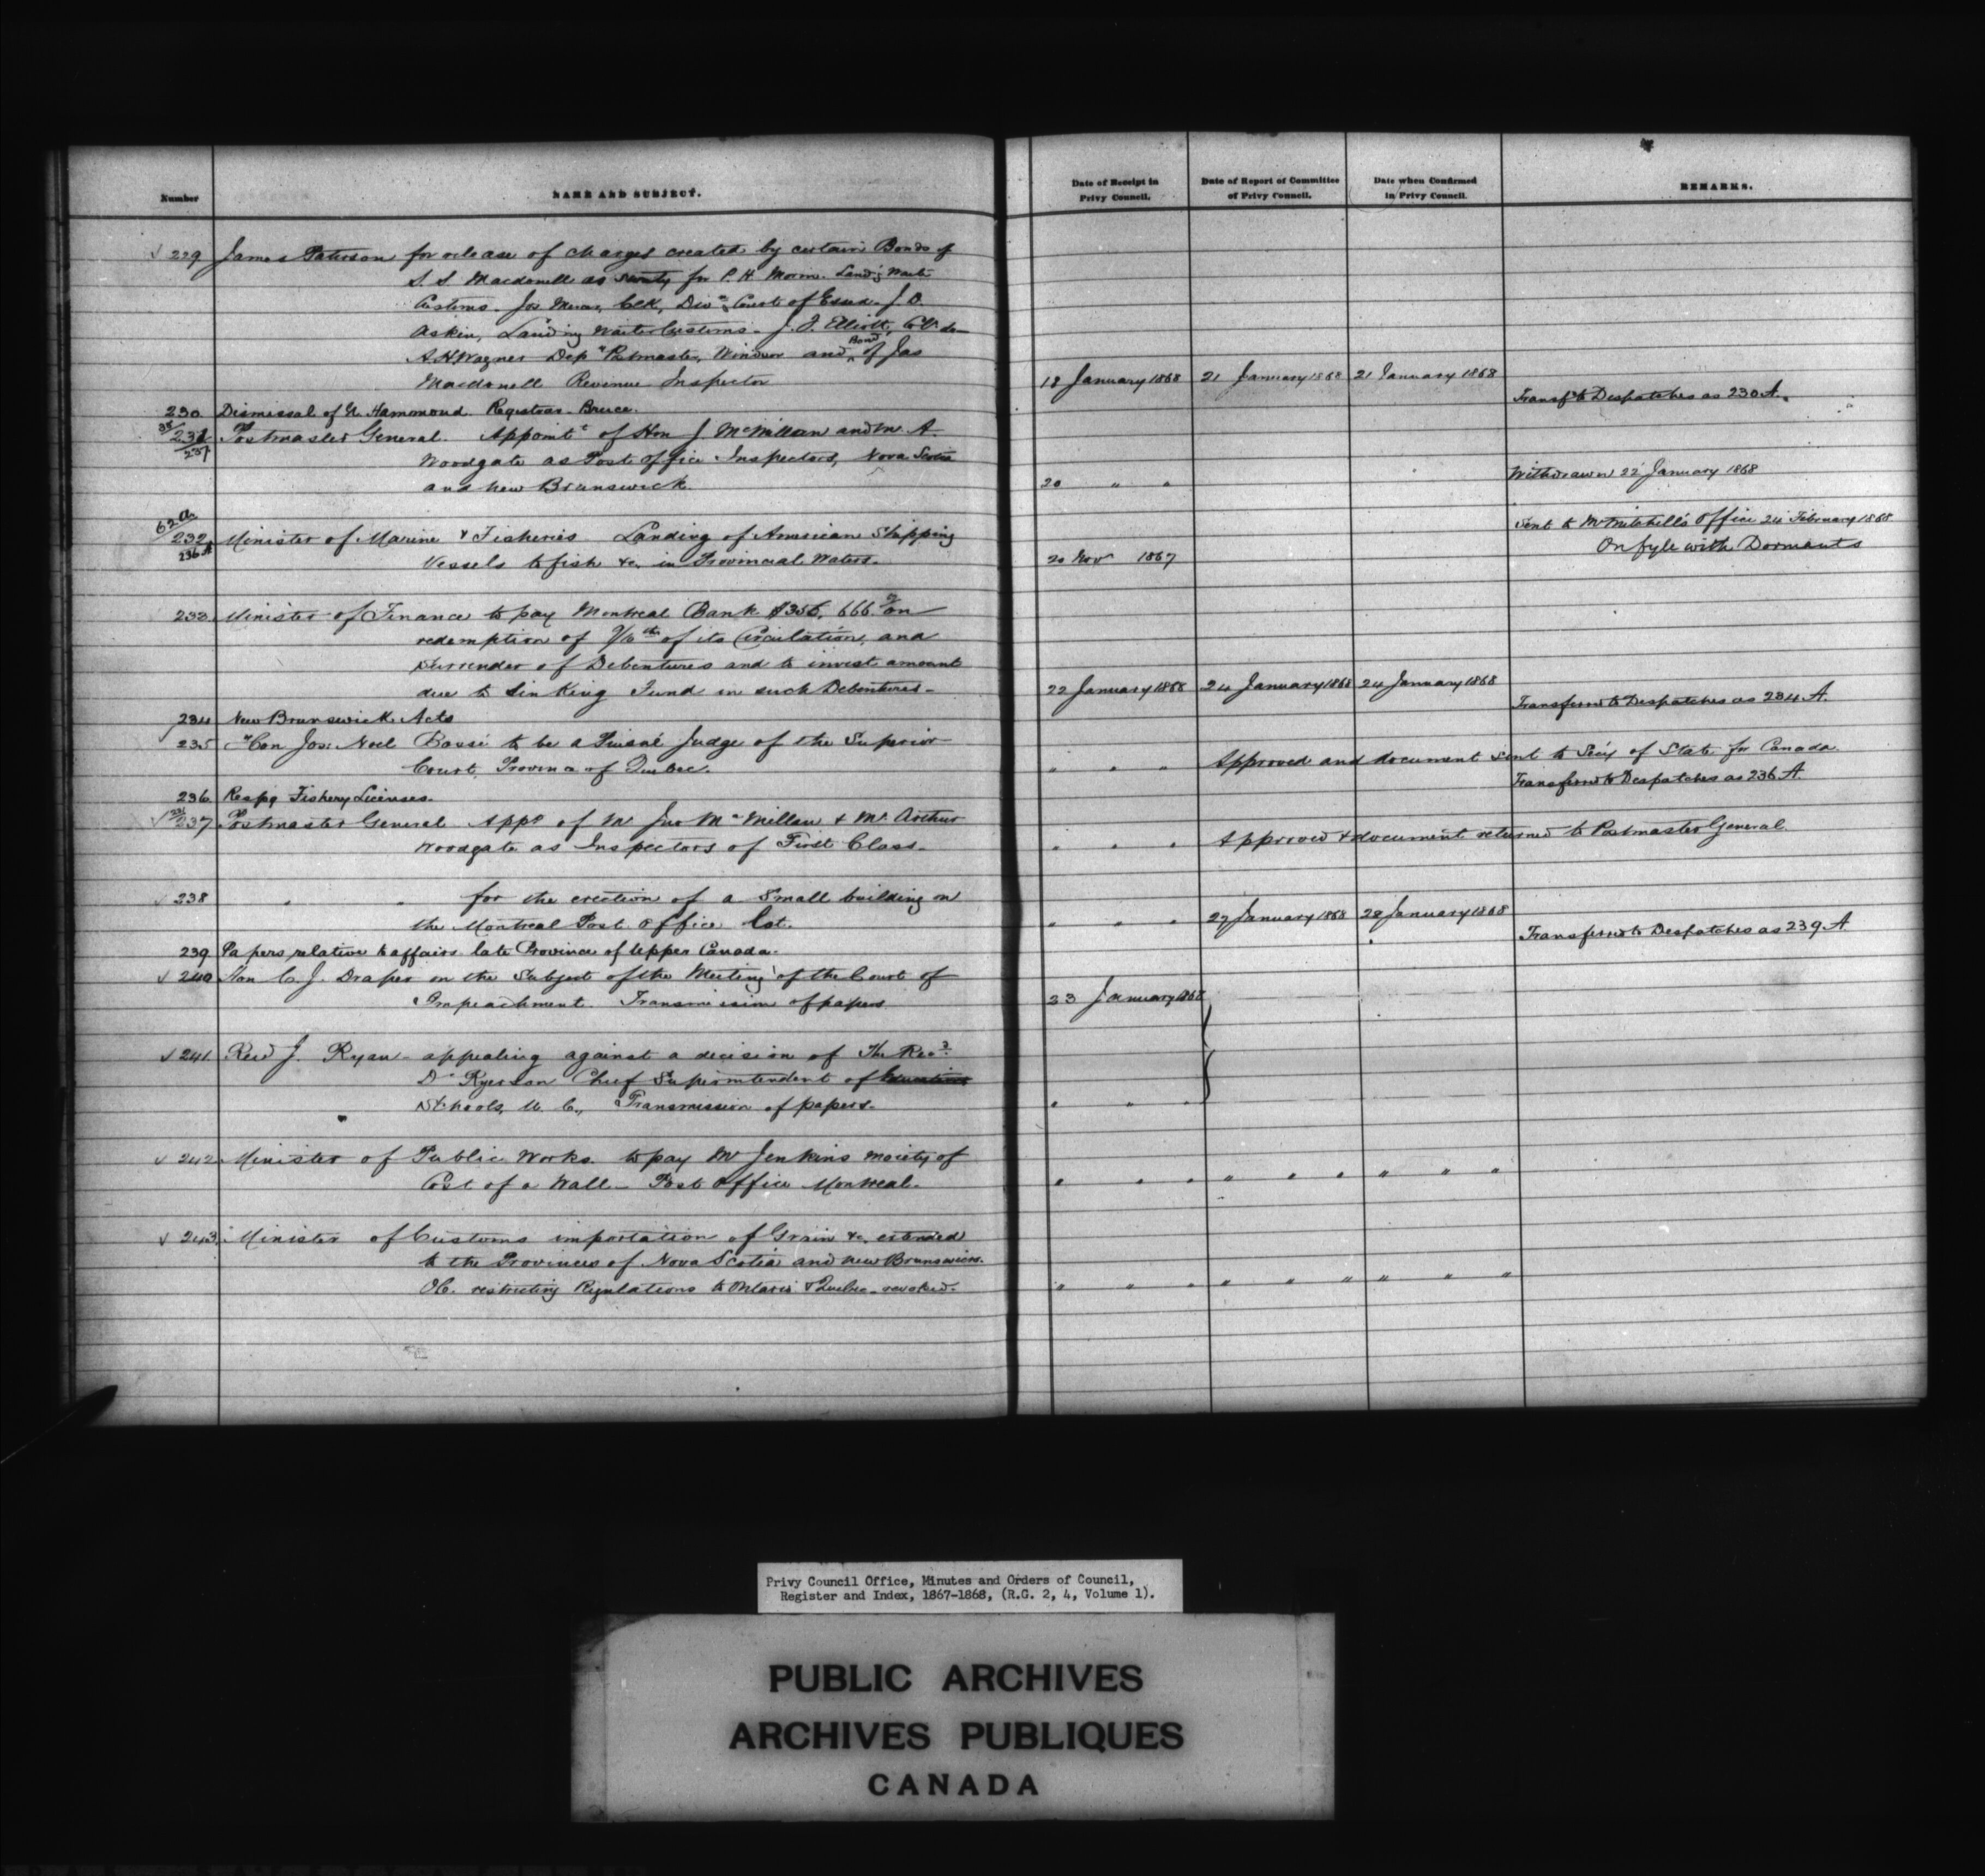 Number
NAME AND SUBJECT.
Date of Receipt in Privy Council.
Date of Report of Committee of Privy Council.
Date when Confirmed in Privy Council.
REMARKS.
229 James Paterson for release of charges created by certain Bonds of
S. S. Macdonell as Surety for P. H. Morin. Land'g Waiter
Customs. Jos Mercer, Clk, Divn Court of Essex. J. A.
Askin, Landing Waiter Customs. J. J. Elliott, do
A. H. Wagner Depy Postmaster, Windsor and Bond of Jas
Macdonell Revenue Inspector 18 January 1868 21 January 1868 21 January 1868
230 Dismissal of N. Hammond Registrar Bruce. Transfd to Despatches as 230 A.
231 Postmaster General. Appointt of Hon J. McMillan and Mr. A.
237
Woodgate as Post Office Inspectors, Nova Scotia
and New Brunswick 20 " " Withdrawn 22 January 1868
62 a
232 Minister of Marine & Fisheries Landing of American Shipping Sent to Mr Mitchell's Office 24 February 1868
236 A
Vessels to fish &c, in Provincial Waters. 20 Novr 1867 On fyle with Dormants
233 Minister of Finance to pay Montreal Bank $356,666 on
redemption of of its Circulation, and
Surrender of Debentures and to invest amount
due to Sinking Fund in such Debentures. 22 January 1868 24 January 1868 24 January 1868
234 New Brunswick Acts Transferred to Despatches as 234 A.
235 Hon Jos: Noel Bossé to be a Puisné Judge of the Superior
Court, Province of Quebec. " " " Approved and document sent to Secy of State for Canada
236 Respg Fishery Licenses. Transferred to Despatches as 236 A
237 Postmaster General Appt of Mr Jno McMillan & Mr Arthur
Woodgate as Inspectors of First Class. " " " Approved & document returned to Postmaster General
238 " " for the erection of a Small building on
the Montreal Post Office Lot. " " " 27 January 1868 28 January 1868
239 Papers relative to affairs late Province of Upper Canada. Transferred to Despatches as 239 A
240 Hon C. J. Draper on the Subject of the Meeting of the Court of
Impeachment. Transmission of papers 23 January 1868
241 Revd J. Ryan appealing against a decision of The Revd
Dr Ryerson Chief Superintendent of Education
Schools, U. C., Transmission of papers. " "
242 Minister of Public Works to pay Mr Jenkins moiety of
Cost of a Wall - Post Office Montreal. " " " " " " " " "
243 Minister of Customs importation of Grain &c, extended
to the Provinces of Nova Scotia and New Brunswick.
OC. restricting Regulations to Ontario & Quebec revoked. " " " " " " " " "
Privy Council Office, Minutes and Orders of Council,
Register and Index, 1867-1868, (R.G. 2, 4, Volume 1).
PUBLIC ARCHIVES
ARCHIVES PUBLIQUES
CANADA